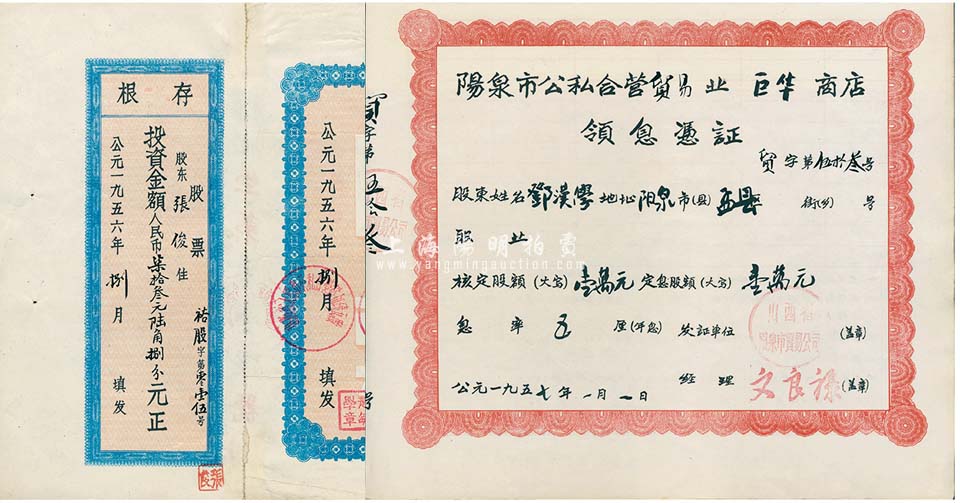 存根
股票
祐股字第零壹伍号
股东張俊住
投資金額人民币柒拾叁元陆角捌分元正
公元一九五六年捌月填发
張俊
公元一九五六年捌月填发
貿字第伍拾叁号
陽泉市公私合营貿易业巨华商店
領息憑証
貿字第伍拾叁号
股東姓名鄧漢學地址阳泉市(县)盂县街(乡)号
股业
核定股額(大写)壹萬元定息股額(大写)壹萬元
息率五厘(年息)发証单位(盖章)
山西省
阳泉市貿易公司
经理文良禄(盖章)
公元一九五七年一月一日
上海陽明拍賣
www.yangmingauction.com